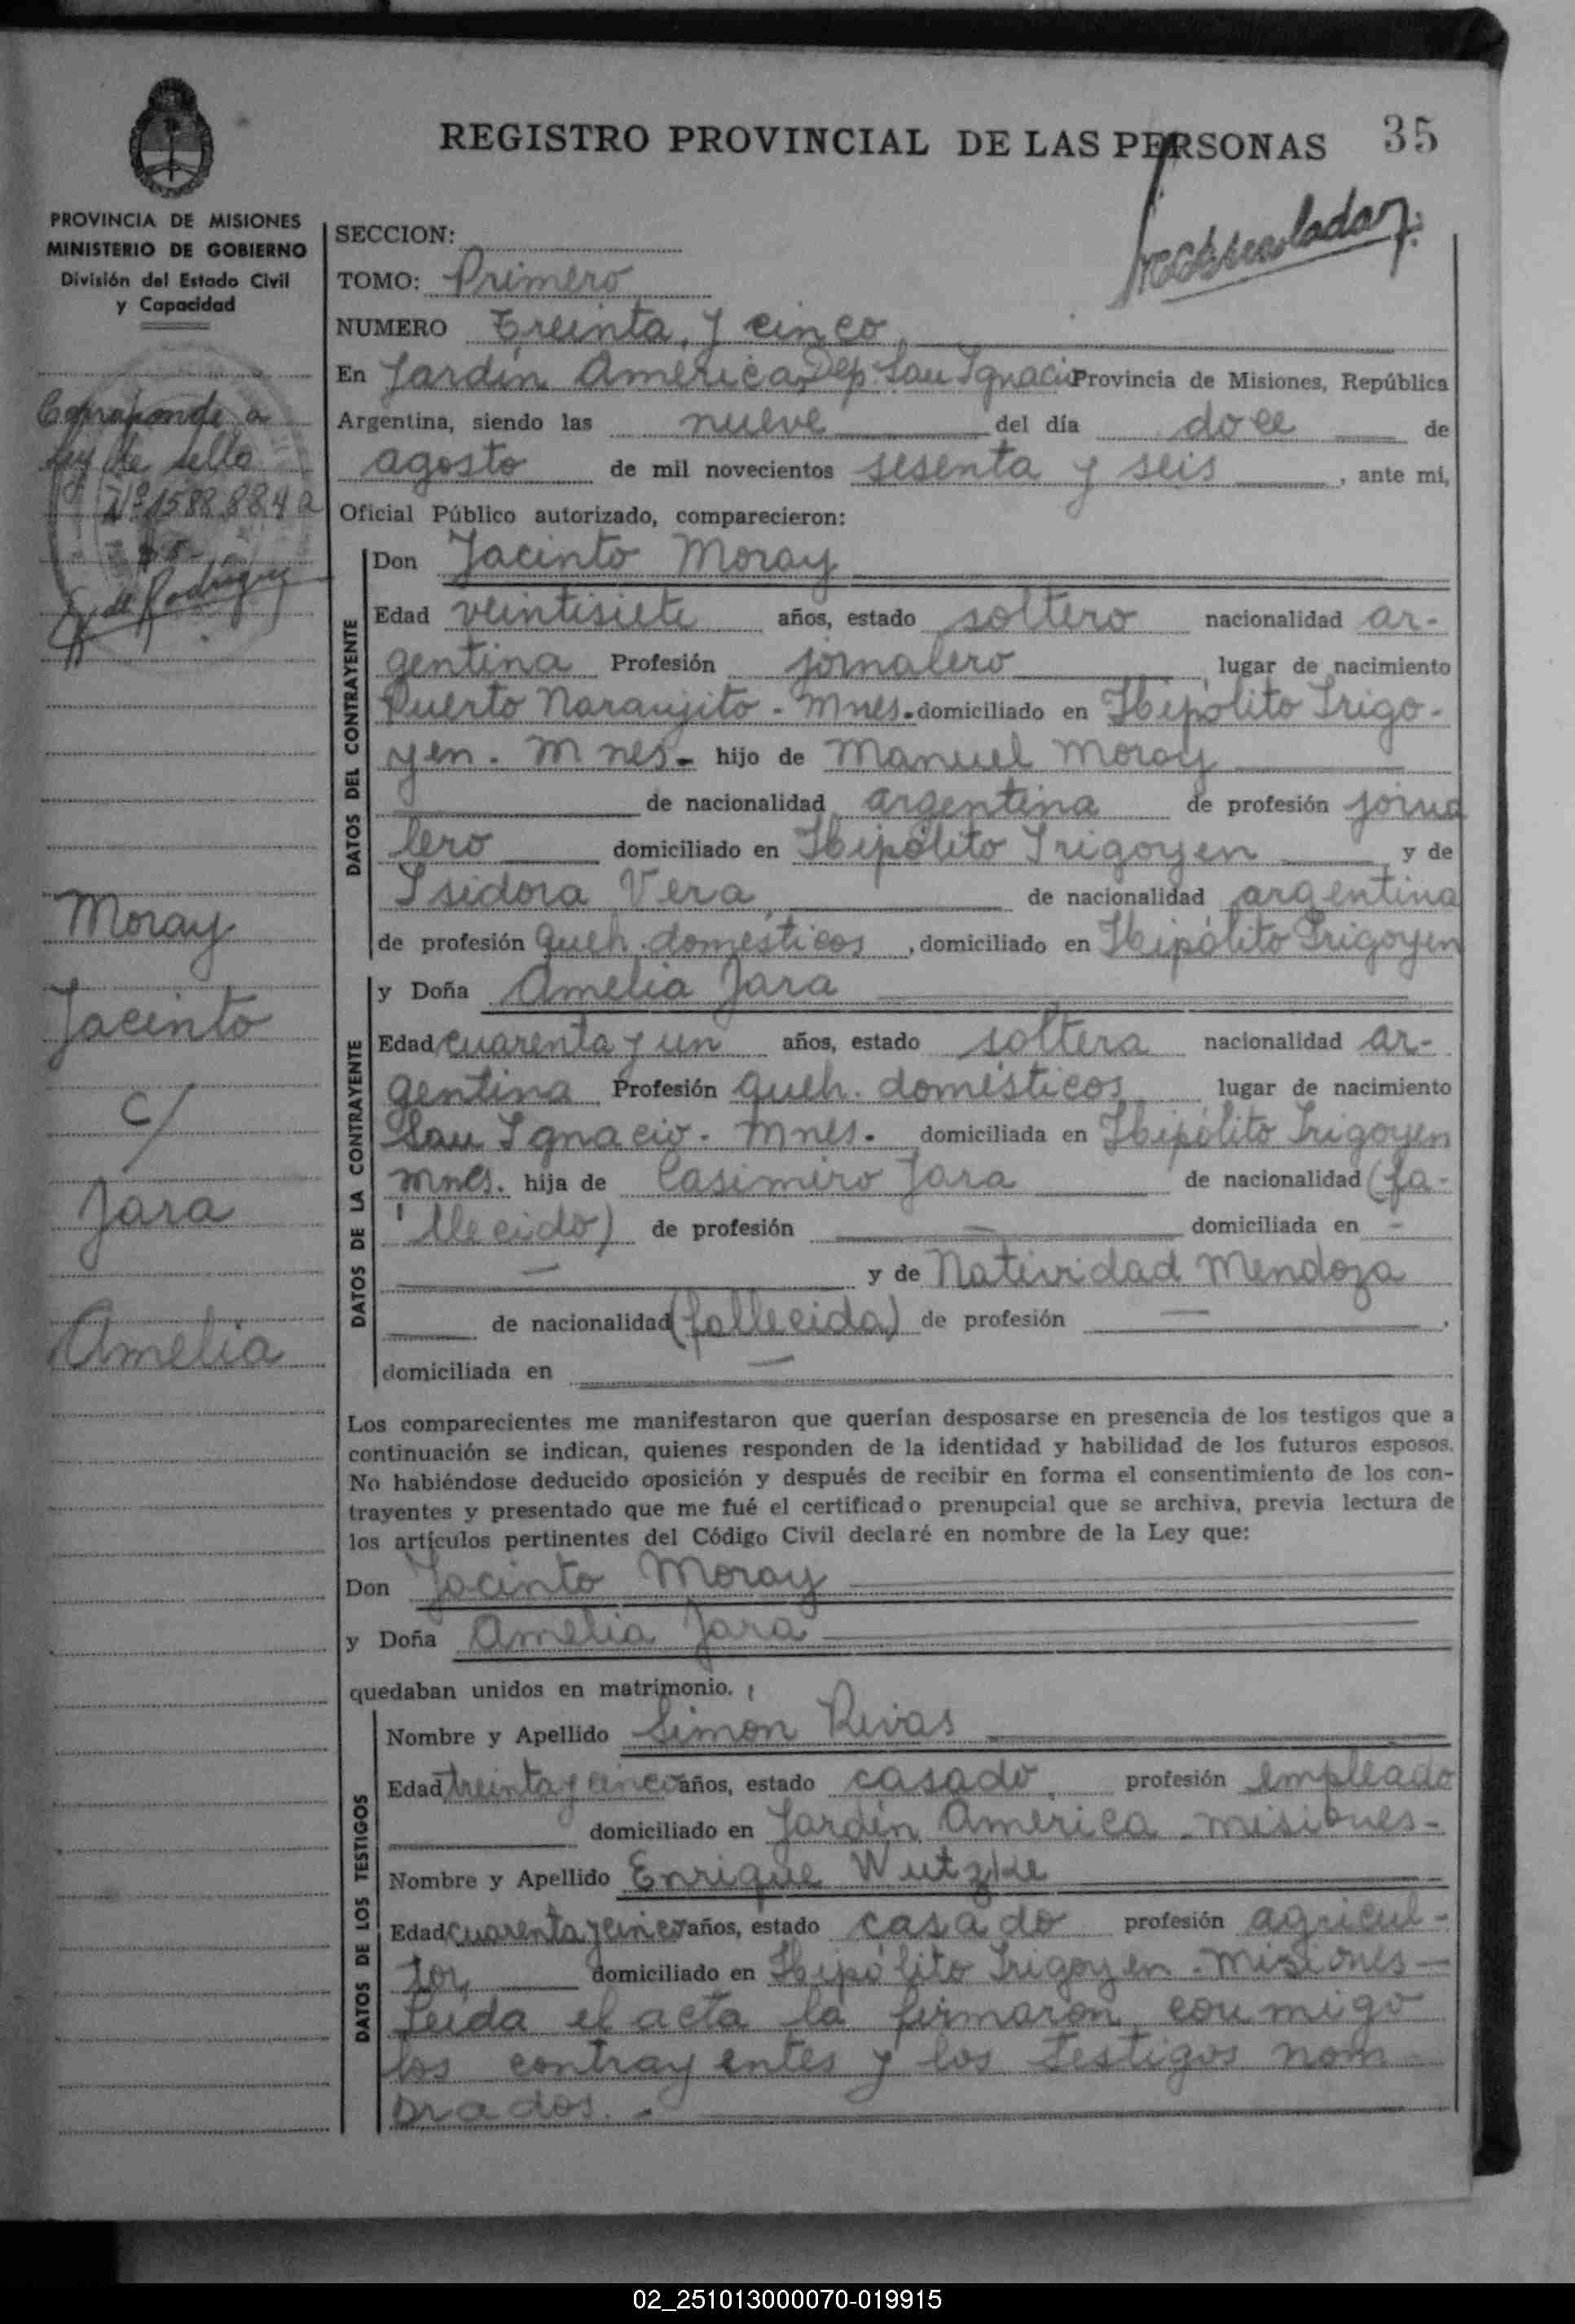 REGISTRO PROVINCIAL DE LAS PERSONAS 35
PROVINCIA DE MISIONES
MINISTERIO DE GOBIERNO
División del Estado Civil
y Capacidad
Corresponde a
ley de sello
Nº 1588884 a
Moray
Jacinto
c/
Jara
Amelia
SECCION:
TOMO: Primero
NUMERO Treinta y cinco
En Jardín América, Dep. San Ignacio Provincia de Misiones, República
Argentina, siendo las nueve del día doce de
agosto de mil novecientos sesenta y seis, ante mí,
Oficial Público autorizado, comparecieron:
DATOS DEL CONTRAYENTE
Don Jacinto Moray
Edad veintisiete años, estado soltero nacionalidad ar-
gentina Profesión jornalero, lugar de nacimiento
Puerto Naranjito - Mnes. domiciliado en Hipólito Irigo-
yen. Mnes. hijo de Manuel Moray
de nacionalidad argentina de profesión jorna
lero domiciliado en Hipólito Irigoyen y de
Isidora Vera, de nacionalidad argentina
de profesión queh. domésticos, domiciliado en Hipólito Irigoyen
DATOS DE LA CONTRAYENTE
y Doña Amelia Jara
Edad cuarenta y un años, estado soltera nacionalidad ar-
gentina Profesión queh. domésticos lugar de nacimiento
San Ignacio. Mnes. domiciliada en Hipólito Irigoyen
Mnes. hija de Casimiro Jara de nacionalidad (fa-
llecido) de profesión — domiciliada en -
— y de Natividad Mendoza
de nacionalidad (fallecida) de profesión —,
domiciliada en —
Los comparecientes me manifestaron que querían desposarse en presencia de los testigos que a
continuación se indican, quienes responden de la identidad y habilidad de los futuros esposos.
No habiéndose deducido oposición y después de recibir en forma el consentimiento de los con-
trayentes y presentado que me fué el certificado prenupcial que se archiva, previa lectura de
los artículos pertinentes del Código Civil declaré en nombre de la Ley que:
Don Jacinto Moray
y Doña Amelia Jara
quedaban unidos en matrimonio.
DATOS DE LOS TESTIGOS
Nombre y Apellido Simon Rivas
Edad treinta y cinco años, estado casado, profesión empleado
domiciliado en Jardín América - misiones-
Nombre y Apellido Enrique Wutzke
Edad cuarenta y cinco años, estado casado profesión agricul-
tor domiciliado en Hipólito Irigoyen - Misiones —
Leída el acta la firmaron conmigo
los contrayentes y los testigos nom-
brados. -
02_251013000070-019915